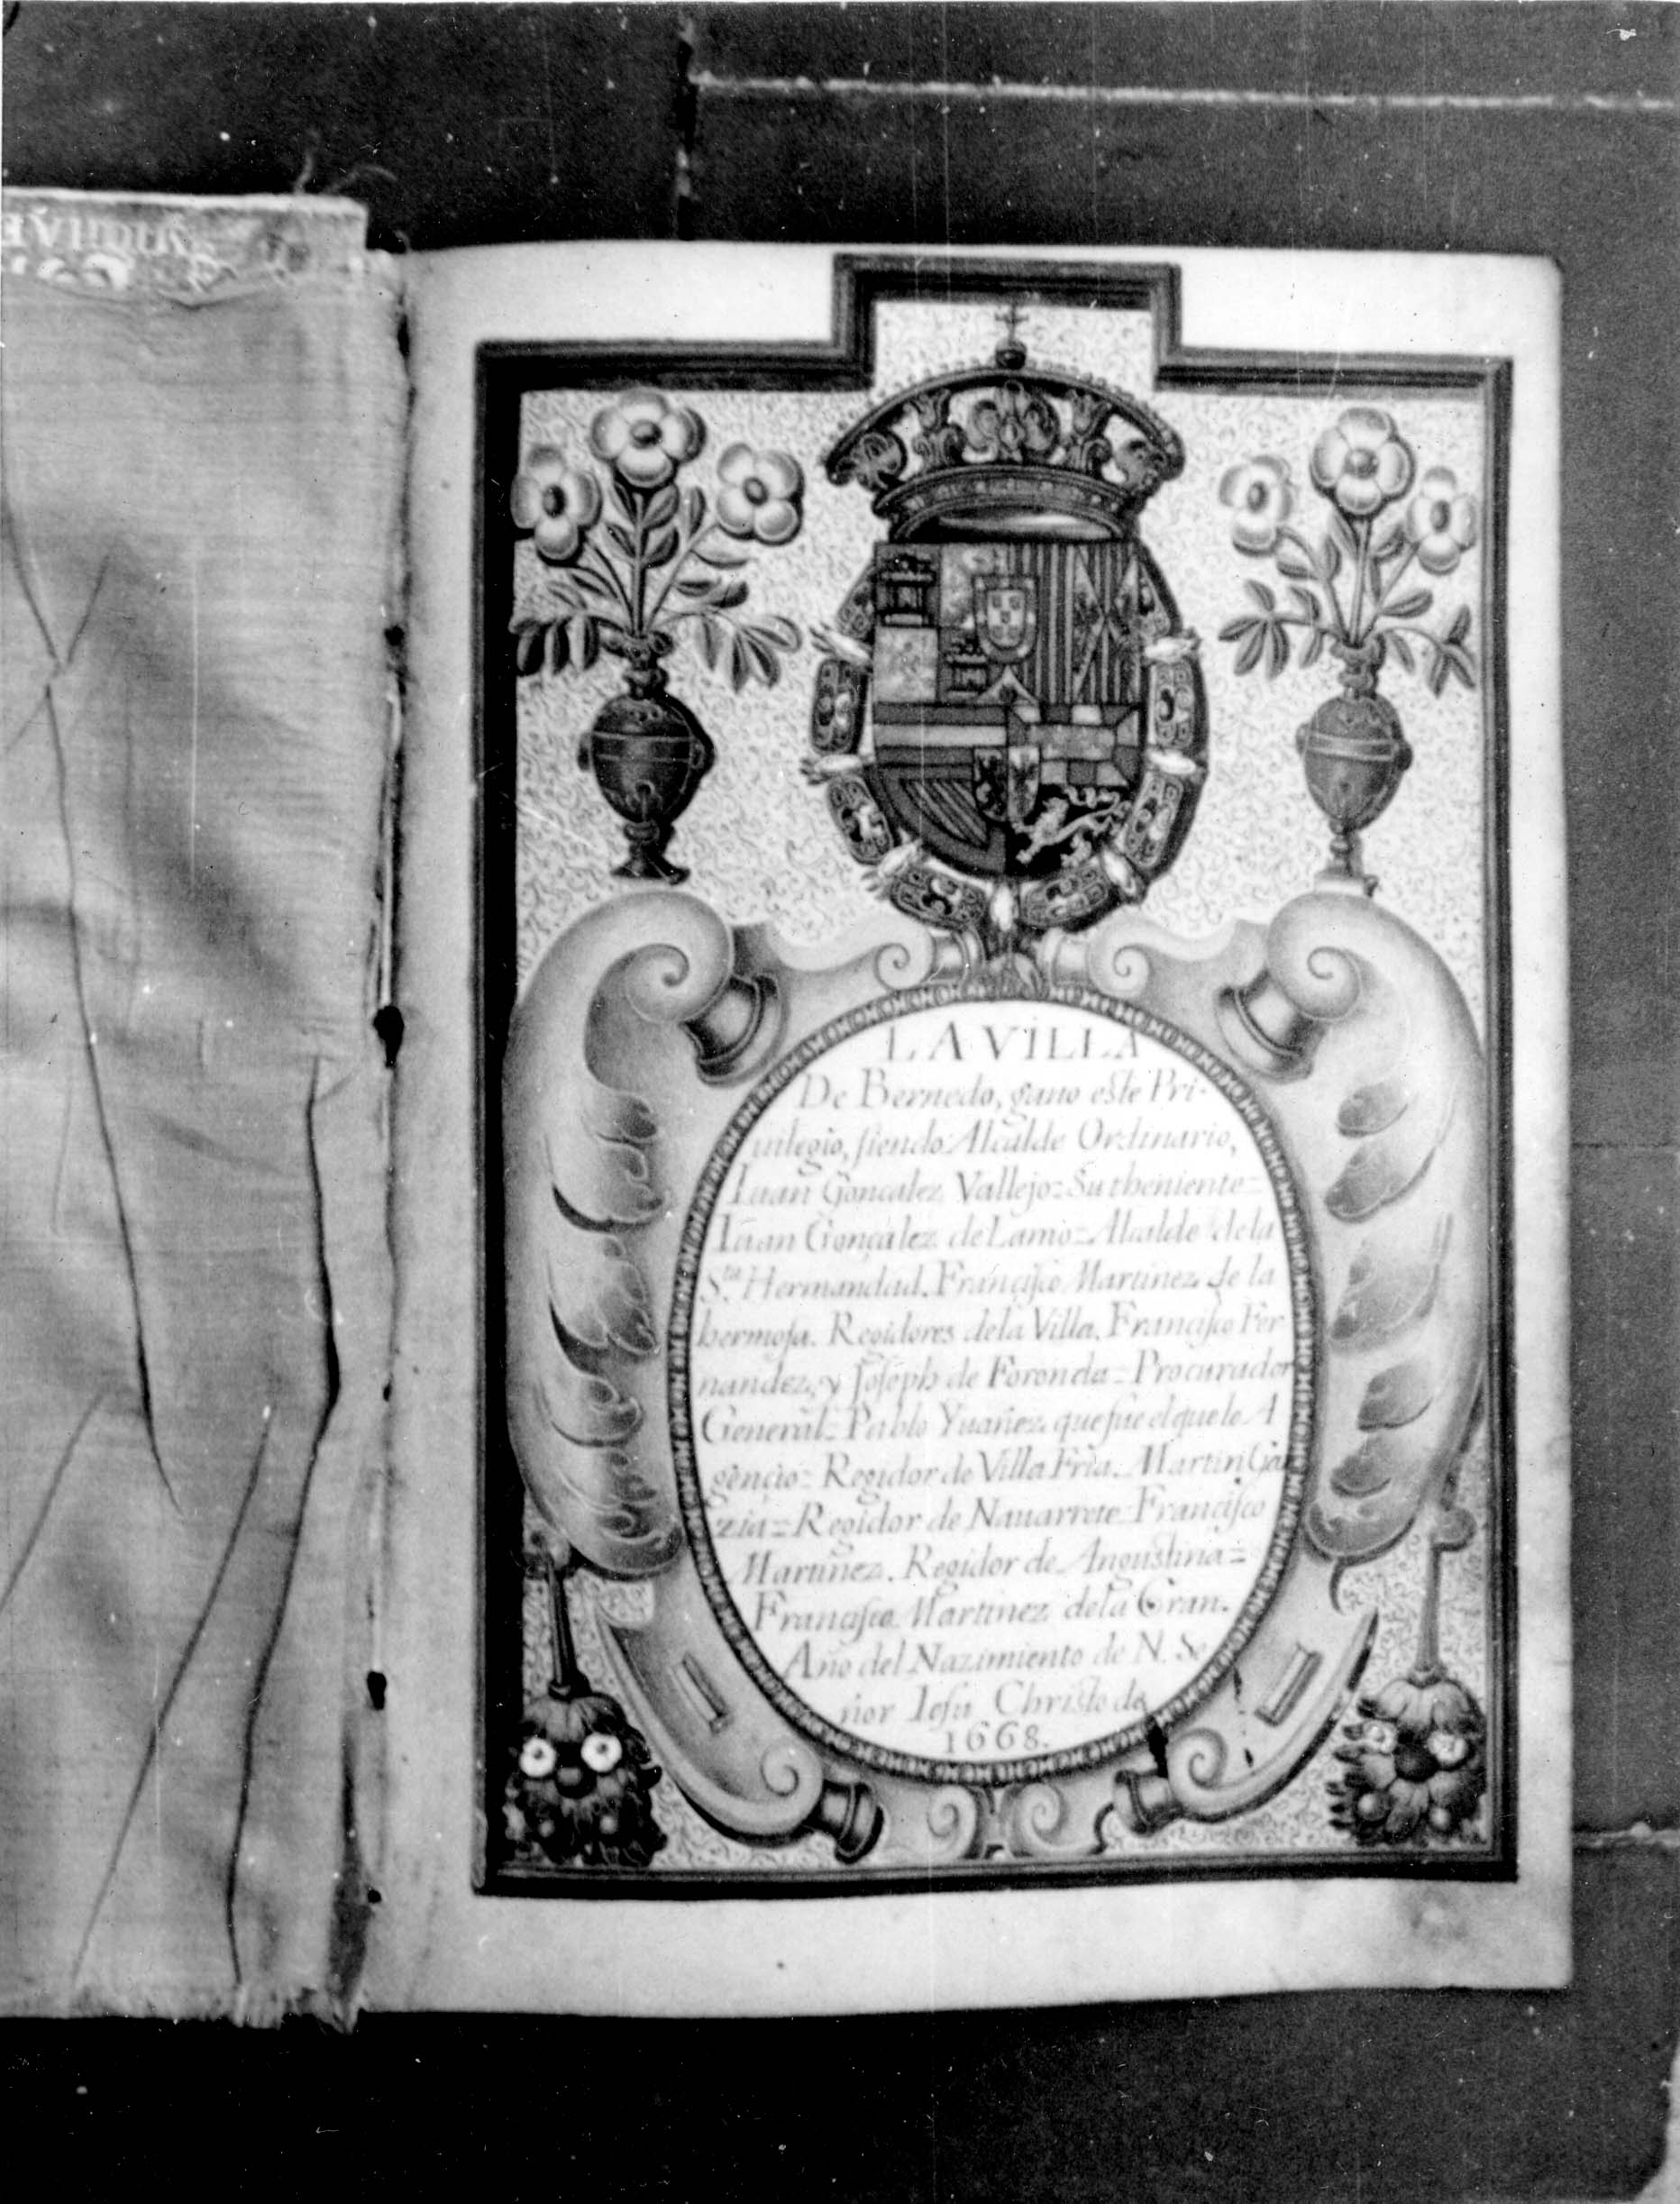 LA VILLA
De Bernedo, gano este Pri-
uilegio, siendo Alcalde Ordinario,
Iuan Gonçalez Vallejo= Su theniente=
Iuan Gonçalez de Lamo= Alcalde de la
S.ta Hermandad. Françisco Martinez de la
hermosa. Regidores de la Villa. Francisco Fer
nandez, y Joseph de Foronda= Procurador
General= Pablo Yuañez. que fue el que le A
gençio= Regidor de Villa Fria. Martin Ga
zia= Regidor de Nauarrete= Francisco
Martinez. Regidor de Angustina=
Francisco Martinez de la Gran.
Año del Nazimiento de N. Se
ñor Iesu Christo de
1668.